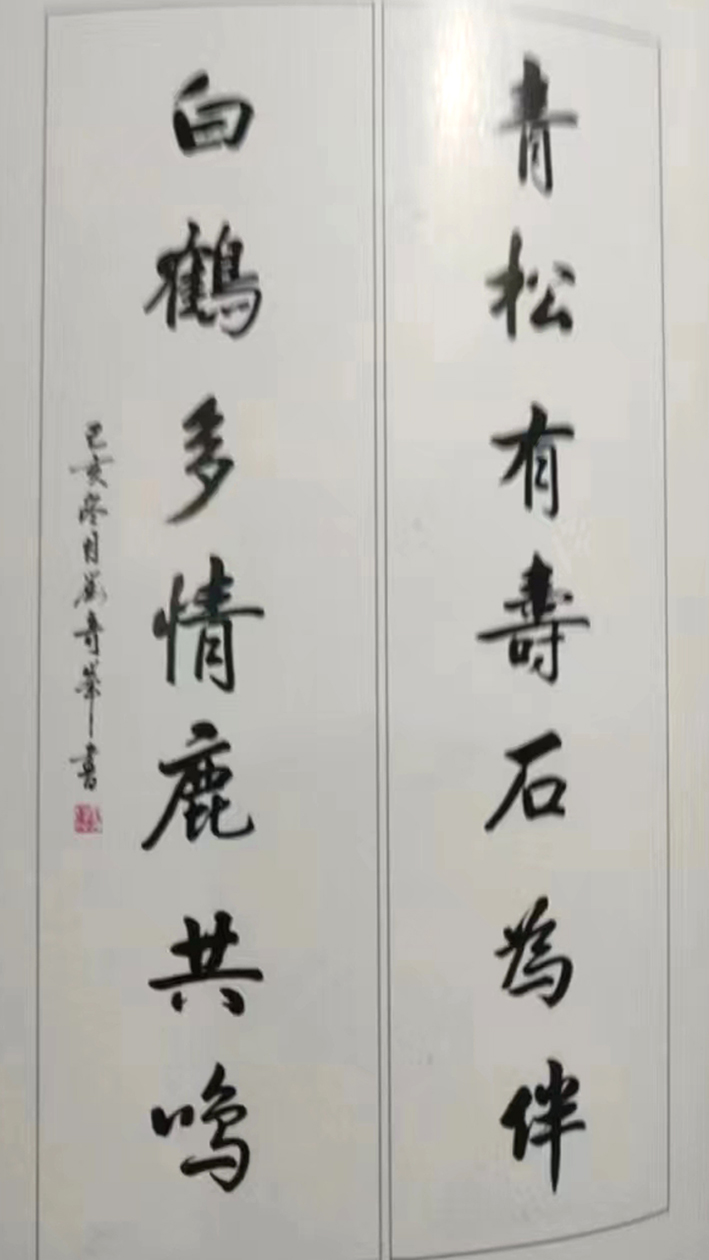 青松有壽石為伴
白鶴多情鹿共鳴
己亥冬月 奇峯書